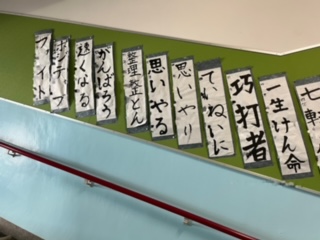 ファイト
ポジティブ
速くなる
がんばろう
整理整とん
思いやる
思いやり
ていねいに
巧打者
一生けん命